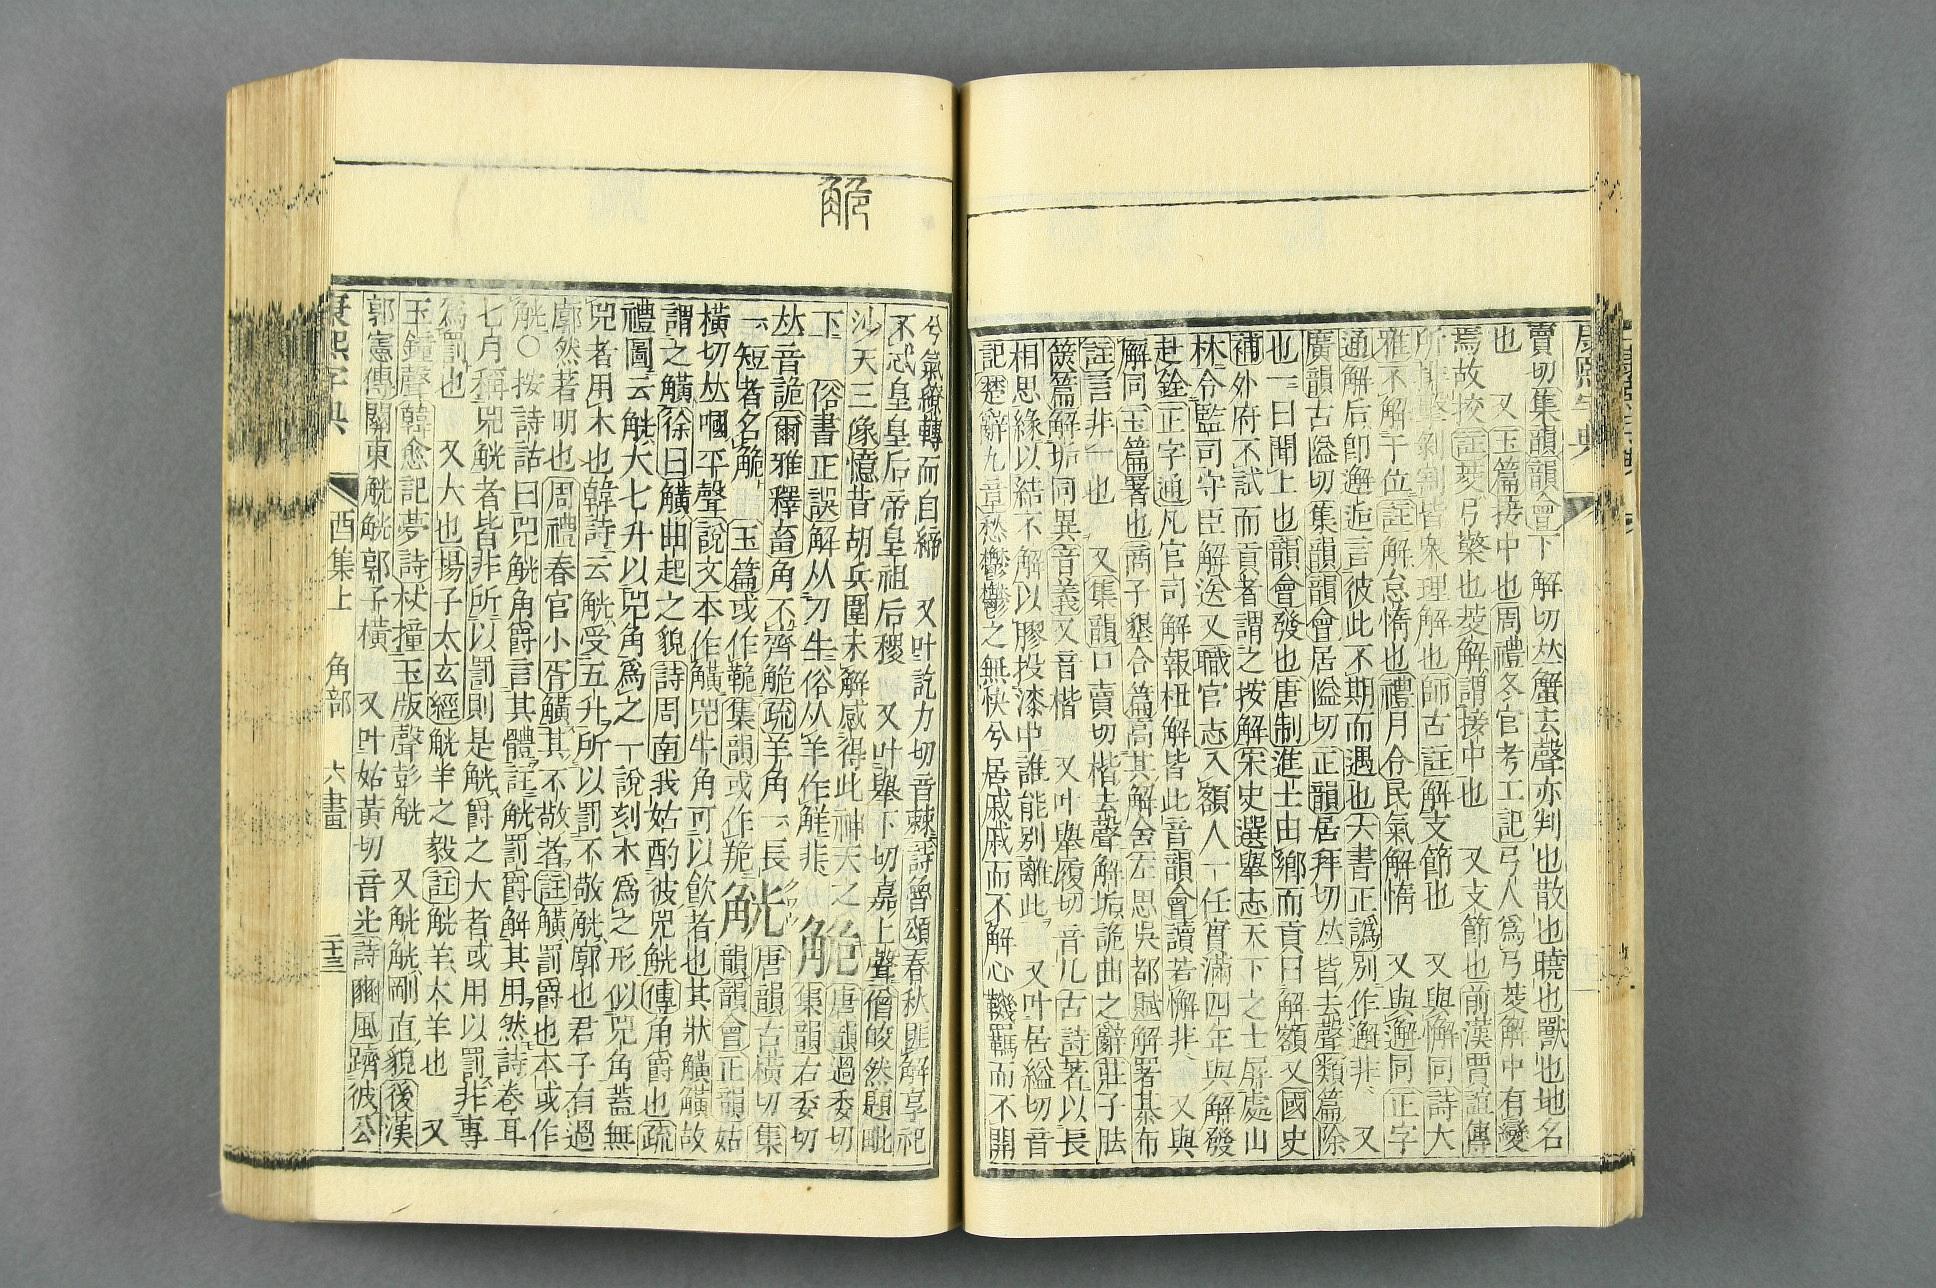 賣切集韻韻會下解切𠀤蟹去聲亦判也散也曉也獸也地名
也 又玉篇接中也周禮冬官考工記弓人爲弓茭解中有變
焉故挍註茭弓檠也茭解謂接中也 又支節也前漢賈誼傳
所排擊剝割皆衆理解也師古註解支節也 又與懈同詩大
雅不解于位註解怠惰也禮月令民氣解惰 又與邂同正字
通解后卽邂逅言彼此不期而遇也六書正譌別作邂非 又
廣韻古隘切集韻韻會居隘切正韻居拜切𠀤皆去聲類篇除
也一曰聞上也韻會發也唐制進士由鄕而貢曰解額又國史
補外府不試而貢者謂之拔解宋史選舉志天下之士屛處山
林令監司守臣解送又職官志入額人一任實滿四年與解發
赴銓正字通凡官司解報杻解皆此音韻會讀若懈非 又與
解同玉篇署也商子墾合篇高其解舍左思吳都賦解署棊布
註言非一也 又集韻口賣切楷去聲解垢詭曲之辭莊子胠
篋篇解垢同異音義又音楷 又叶舉履切音几古詩著以長
相思緣以結不解以膠投漆中誰能別離此 又叶居縊切音
記楚辭九章愁鬱鬱之無快兮居戚戚而不解心鞿羈而不開
兮氣繚轉而自締 又叶訖力切音棘詩魯頌春秋匪解享祀
不忒皇皇后帝皇祖后稷 又叶舉下切嘉上聲僧皎然題毗
沙天三像憶昔胡兵圍未解感得此神天之 觤唐韻過委切
下 俗書正誤解从刀牛俗从羊作觧非 集韻右委切
𠀤音詭爾雅釋畜角不齊觤疏羊角一長 觥唐韻古橫切集
一短者名觤 玉篇或作䡄集韻或作𦍩 韻韻會正韻姑
橫切𠀤嘓平聲說文本作觵兕牛角可以飮者也其狀觵觵故
謂之觵徐曰觵曲起之貌詩周南我姑酌彼兕觥傳角爵也疏
禮圖云觥大七升以兕角爲之一說刻木爲之形似兕角蓋無
兕者用木也韓詩云觥受五升所以罰不敬觥廓也君子有過
廓然著明也周禮春官小胥觵其不敬者註觵罰爵也本或作
觥○按詩詁曰兕觥角爵言其體註觥罰爵解其用然詩卷耳
七月稱兕觥者皆非所以罰則是觥爵之大者或用以罰非專
爲罰也 又大也揚子太玄經觥羊之毅註觥羊大羊也 又
玉鐘聲韓愈記夢詩杖撞玉版聲彭觥 又觥觥剛直貌後漢
郭憲傳關東觥觥郭子橫 又叶姑黃切音光詩豳風躋彼公
康熙字典 酉集上 角部 六畫 二十三